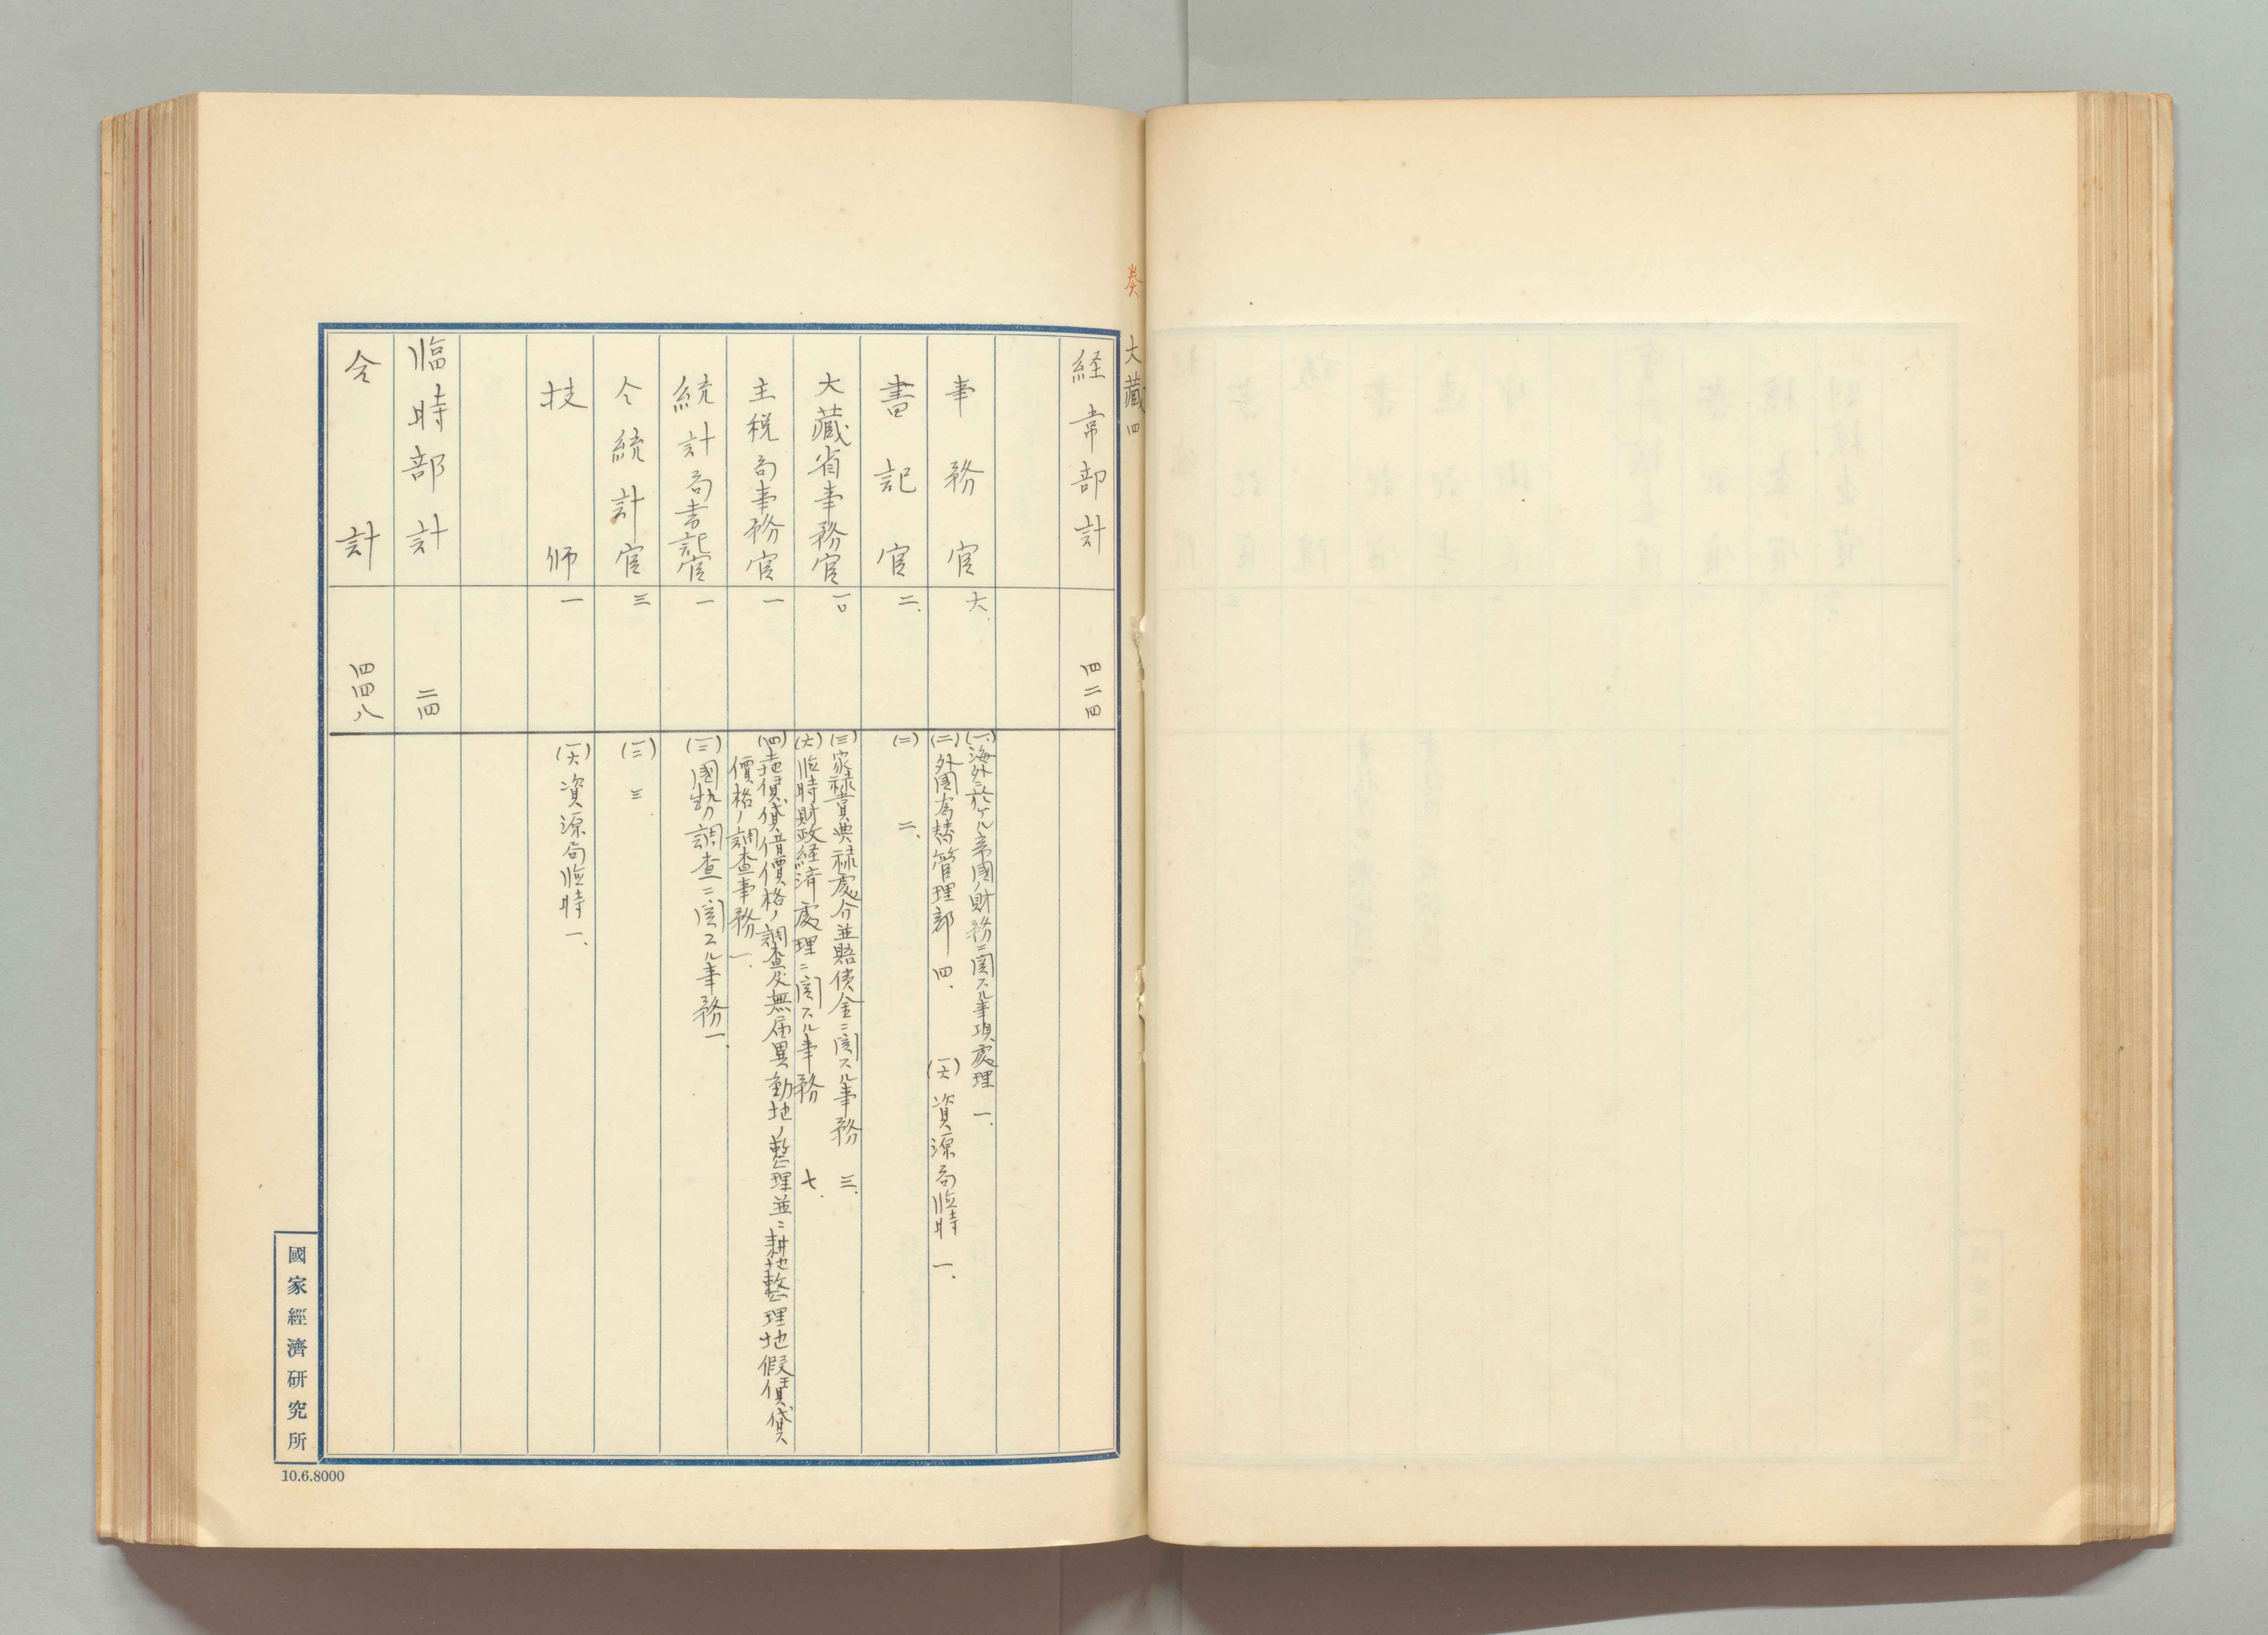 奏
大藏四
経常部計 四二四
事務官 六、 (一)海外ニ於ケル帝國ノ財務ニ関スル事項処理 一、
(二)外國為替管理部 四、 (一六)資源局臨時 一、
書記官 二、 (二) 二、
大藏省事務官 一〇 (三)家禄賞典禄處分並賠償金ニ関スル事務 三、
(六)臨時財政経済處理ニ関スル事務 七、
主税局事務官 一 (四)土地賃貸借價格ノ調査及無届異動地ノ整理並ニ耕地整理地假賃貸
價格ノ調査事務 一、
統計局書記官 一 (一三)國勢調査ニ関スル事務 一、
仝統計官 三 (一三) 三
技師 一 (一六)資源局臨時 一、
臨時部計 二四
合計 四四八
國家經濟研究所
10.6.8000